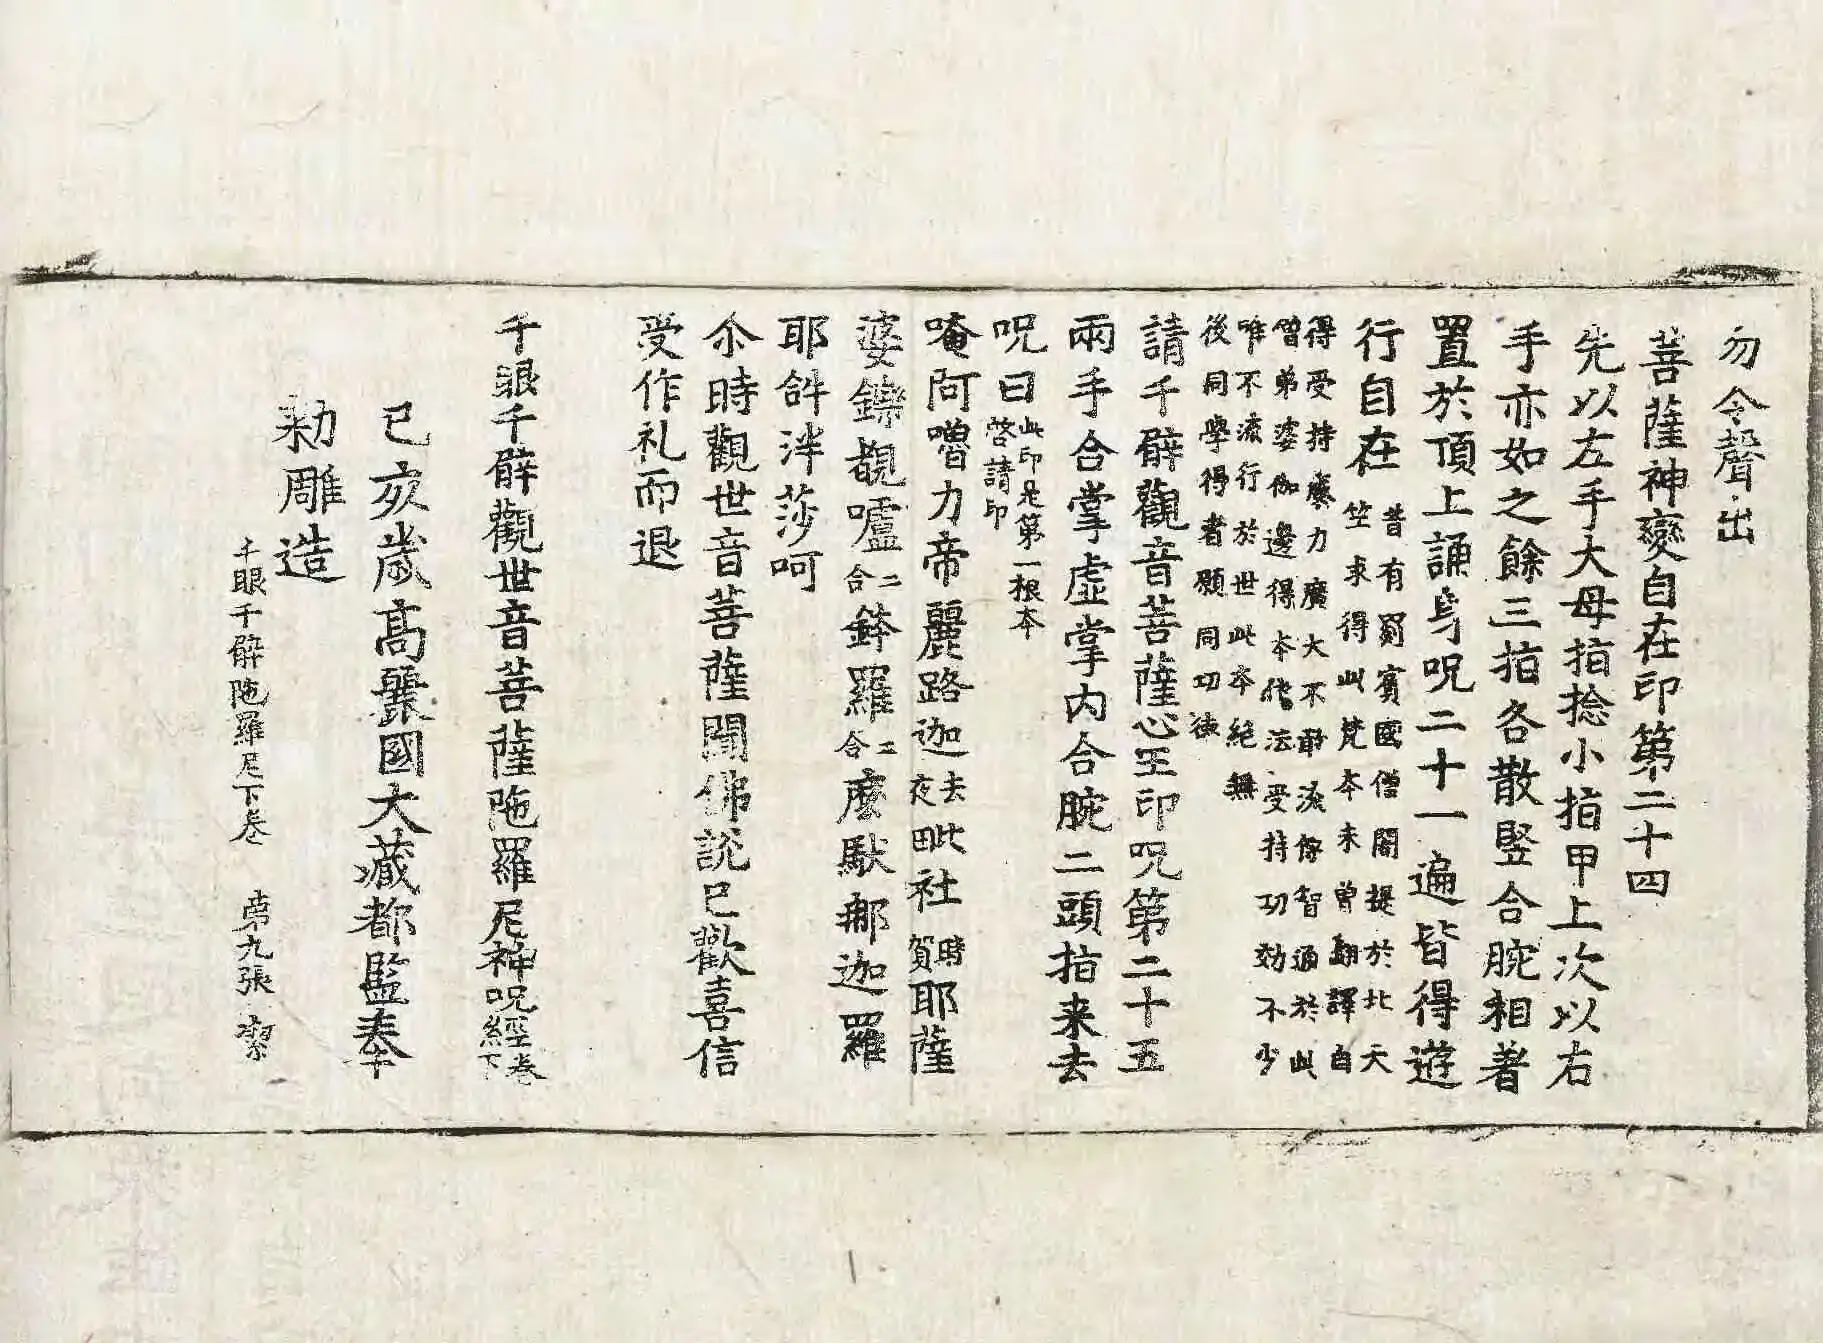 勿令聲出
菩薩神變自在印第二十四
先以左手大母指捻小指甲上次以右
手亦如之餘三指各散竪合腕相著
置於頂上誦身呪二十一遍皆得遊
行自在
昔有罽賓國僧闍提於北天
竺求得此梵本未曾翻譯自
得受持藥力廣大不敢流傳智通於此
僧弟婆伽邊得本傳法受持功効不少
唯不流行於世此本絕無
後同學得者願同功德
請千臂觀音菩薩心王印呪第二十五
兩手合掌虛掌內合腕二頭指来去
呪曰
此印是第一根本
啓請印
唵阿嚕力帝麗路迦去夜毗社時賀耶薩
婆鑠覩嚧二合鉢羅二合麼馱那迦羅
耶𤙖泮莎呵
尒時觀世音菩薩聞佛說已歡喜信
受作礼而退
千眼千臂觀世音菩薩陁羅尼神呪經卷下
己亥歲高麗國大藏都監奉
勑雕造
千眼千臂陁羅尼下卷 第九張 潔